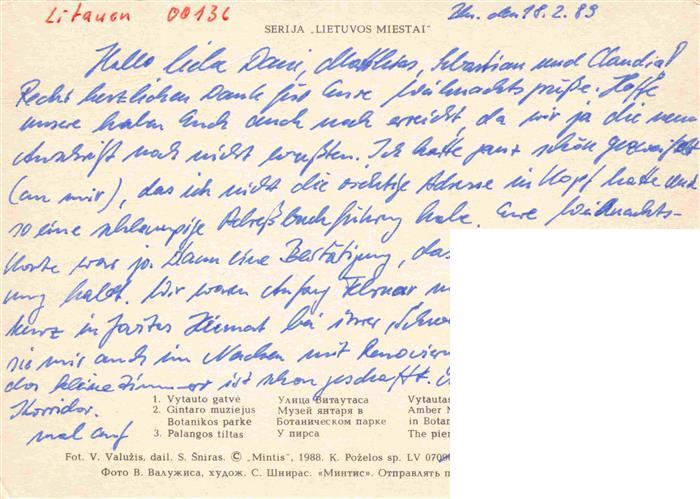 Litauen 00136
SERIJA „LIETUVOS MIESTAI"
den 18.2.89
Hallo liebe Dani, Matthias, Sebastian und Claudia!
Recht herzlichen Dank für Eure Weihnachtsgrüße. Hoffe
unsere haben Euch auch noch erreicht, da wir ja die neue
Anschrift noch nicht wußten. Ich hatte ganz schön gezweifelt
(an mir), das ich nicht die richtige Adresse im Kopf hatte und
so eine schlampige Adreßbuchführung habe. Eure Weihnachts-
karte war ja dann eine Bestätigung, das
ung haldt. Wir waren Anfang Februar
kurz in Heimat bei ihrer
sie mir auch im Nacken mit Renovier
das kleine Zimmer ist schon geschafft.
Korridor.
mal auf
1. Vytauto gatvė Улица Витаутаса Vytautas
2. Gintaro muziejus Музей янтаря в Amber M
Botanikos parke Ботаническом парке in Botan
3. Palangos tiltas У пирса The pier
Fot. V. Valužis, dail. S. Šniras. © „Mintis", 1988. K. Poželos sp. LV 070
Фото В. Валужиса, худож. С. Шнирас. «Минтис». Отправлять п